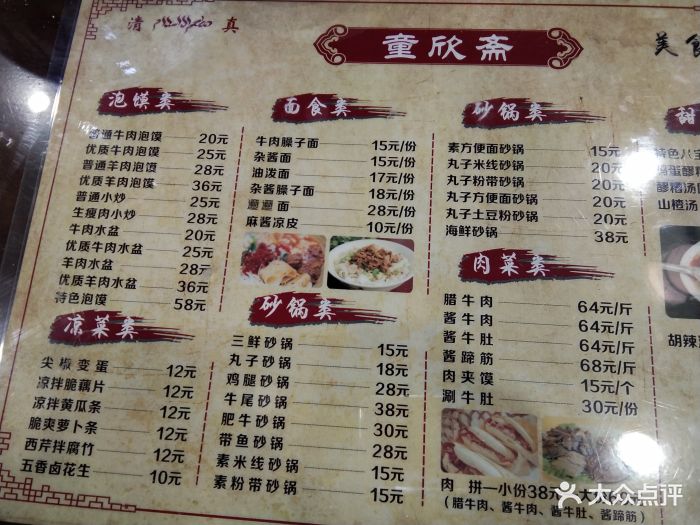 清 真
童欣斋
美食
泡馍类
普通牛肉泡馍 20元
优质牛肉泡馍 25元
普通羊肉泡馍 28元
优质羊肉泡馍 36元
普通小炒 20元
生瘦肉小炒 28元
牛肉水盆 20元
优质牛肉水盆 25元
羊肉水盆 28元
优质羊肉水盆 36元
特色泡馍 58元
凉菜类
尖椒变蛋 12元
凉拌脆藕片 12元
凉拌黄瓜条 12元
脆爽萝卜条 12元
西芹拌腐竹 12元
五香卤花生 10元
面食类
牛肉臊子面 15元/份
杂酱面 15元/份
油泼面 17元/份
杂酱臊子面 18元/份
面 28元/份
麻酱凉皮 10元/份
砂锅类
三鲜砂锅 15元
丸子砂锅 18元
鸡腿砂锅 28元
牛尾砂锅 38元
肥牛砂锅 30元
带鱼砂锅 28元
素米线砂锅 15元
素粉带砂锅 15元
砂锅类
素方便面砂锅 15元
丸子米线砂锅 20元
丸子粉带砂锅 20元
丸子方便面砂锅 20元
丸子土豆粉砂锅 20元
海鲜砂锅 38元
肉菜类
腊牛肉 64元/斤
酱牛肉 64元/斤
酱牛肚 64元/斤
酱蹄筋 68元/斤
肉夹馍 15元/个
涮牛肚 30元/份
肉 拼一小份38元
(腊牛肉、酱牛肉、酱牛肚、酱蹄筋)
甜
特色八宝
醪糟
醪糟汤
山楂汤
胡辣
大众点评